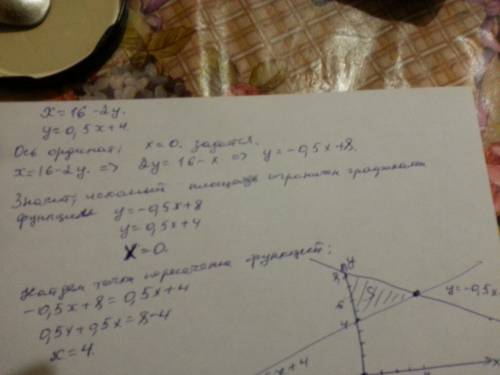 x=16-2y.
y=0,5x+4.
Ось ординат: x=0. задается.
x=16-2y. => 2y=16-x => y=-0,5x+8.
Значит, искомый площадь ограничен графиками
функциями y=-0,5x+8
y=0,5x+4
x=0.
Найдем точки пересечения функций;
-0,5x+8=0,5x+4
0,5x+0,5x=8-4
x=4.
y
8
S
4
y=-0,5x
x+4
x